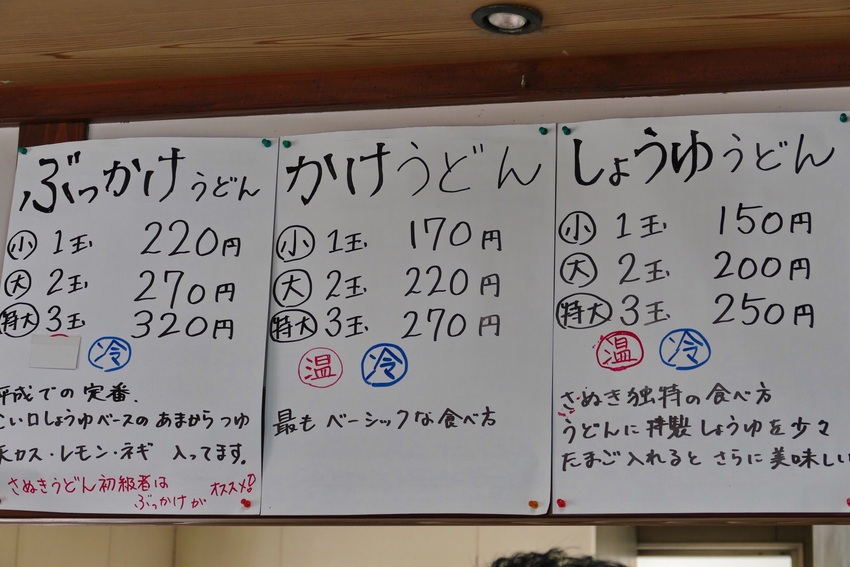 ぶっかけうどん
小 1玉 220円
大 2玉 270円
特大 3玉 320円
冷
平成での定番.
こい口しょうゆベースの あまからつゆ
天カス・レモン・ネギ 入ってます。
さぬきうどん初級者は
ぶっかけが オススメ!!
かけうどん
小 1玉 170円
大 2玉 220円
特大 3玉 270円
温 冷
最も ベーシックな食べ方
しょうゆうどん
小 1玉 150円
大 2玉 200円
特大 3玉 250円
温 冷
さぬき独特の食べ方
うどんに特製しょうゆを少々
たまご入れると さらに美味しい